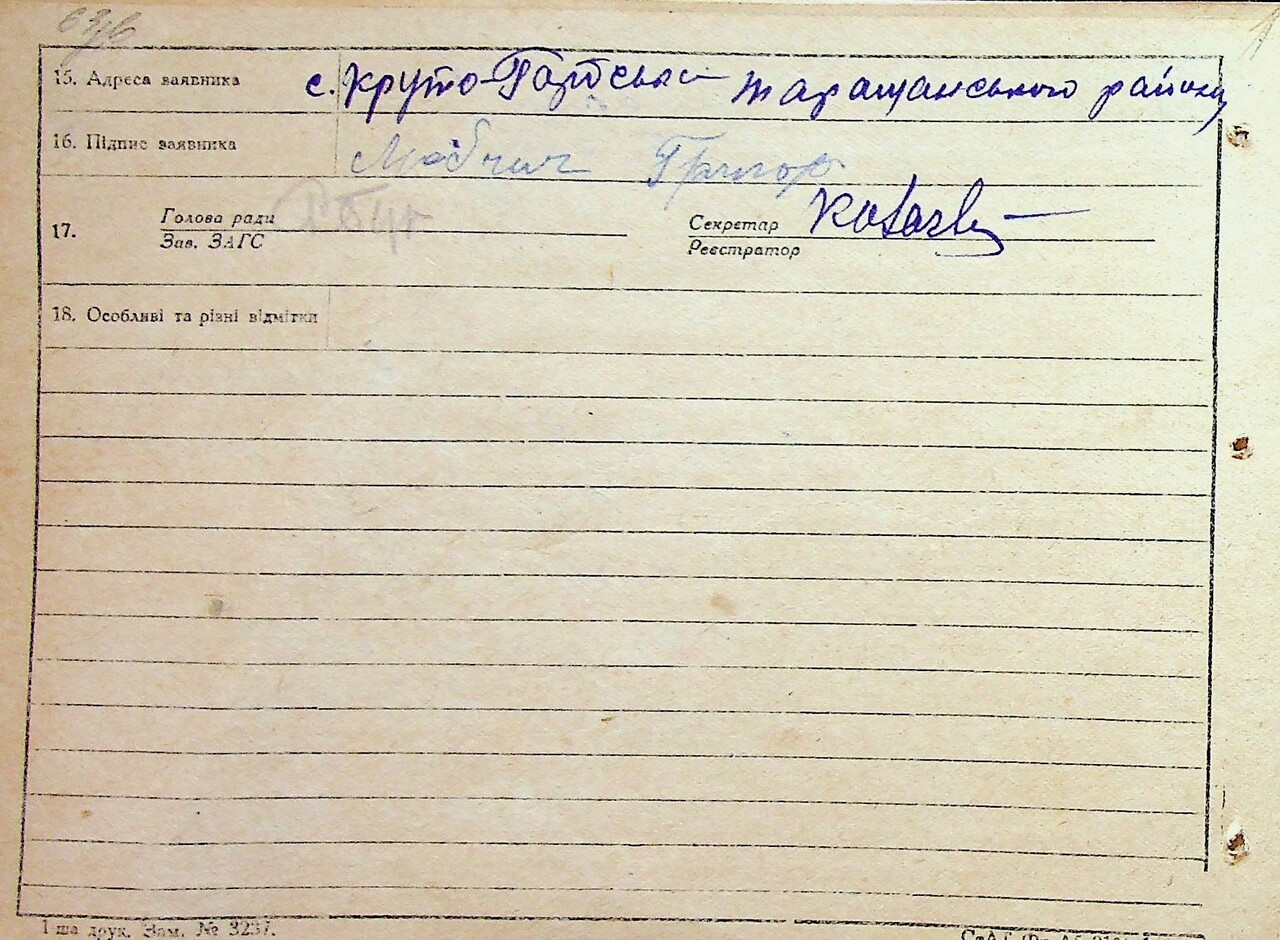 15. Адреса заявника с. Круто-Горбськ Таращанського району
16. Підпис заявника Григор
17. Голова ради Секретар
Зав. ЗАГС Реєстратор
18. Особливі та різні відмітки
1-ша друк. Зам. № 3237.